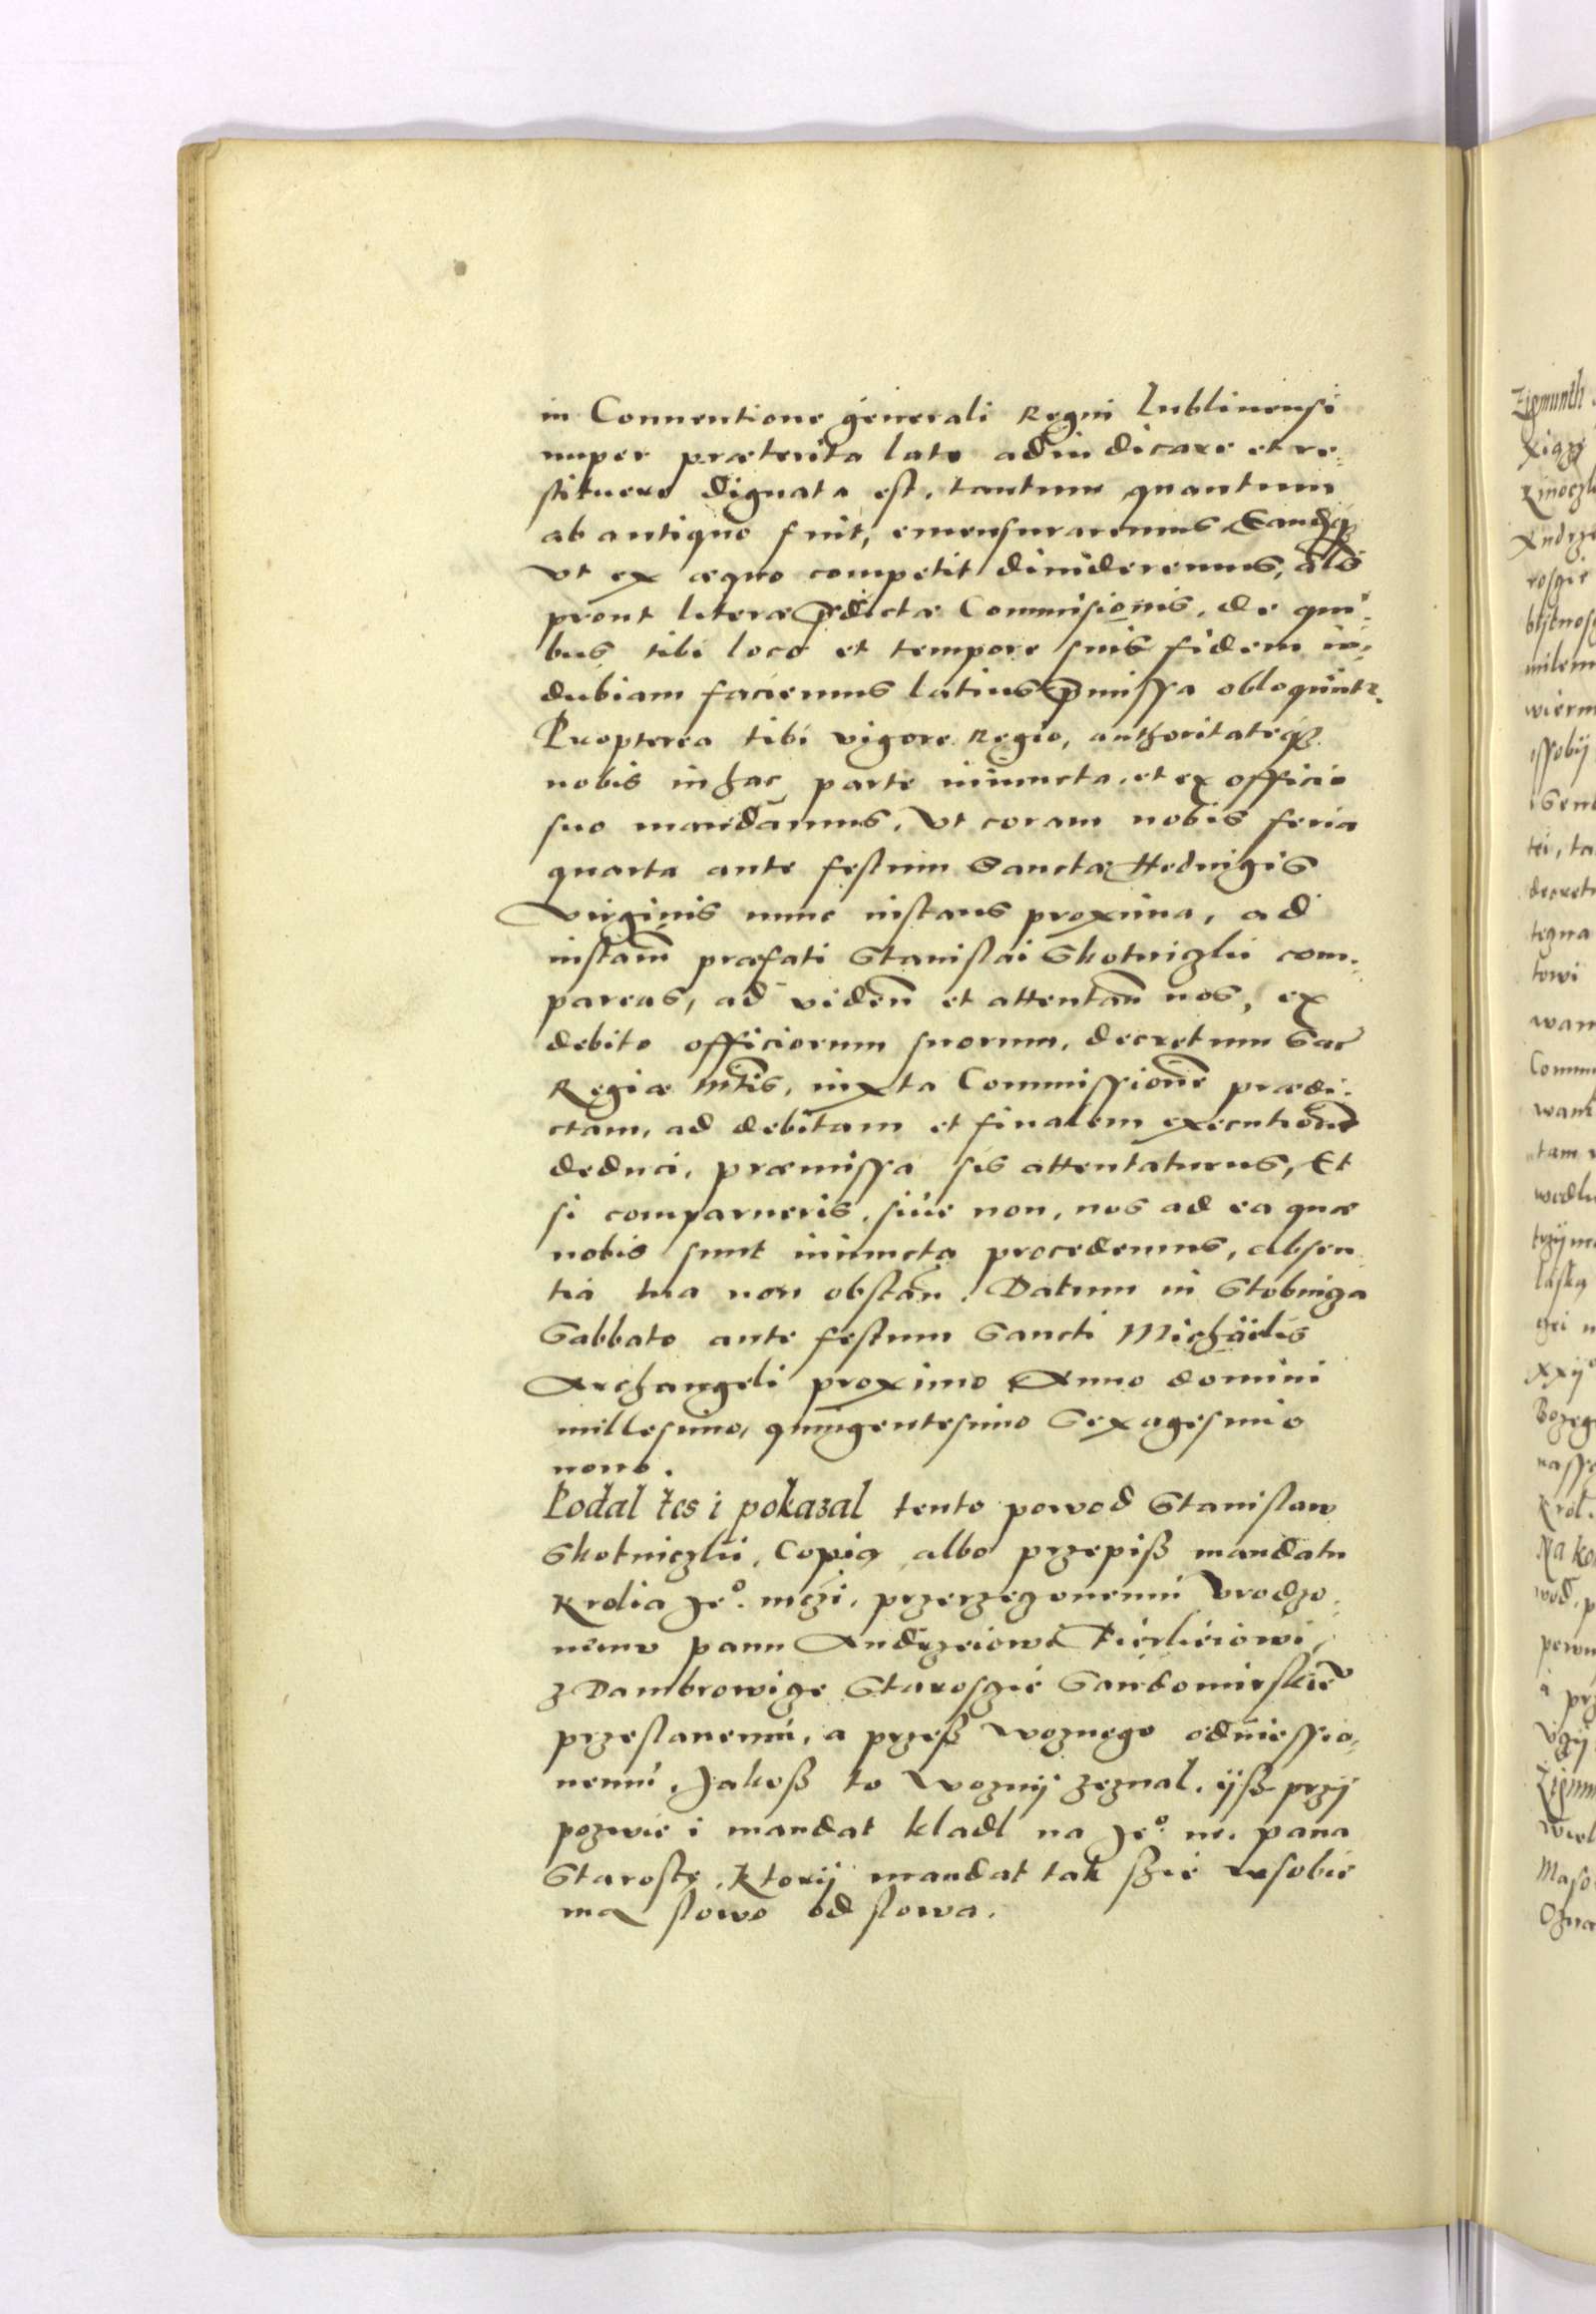 in Conuentione generali Regni Lublinensi
nuper præterita lato adiudicare et re-
stituere dignata est, tantum quantum
ab antiquo fuit, emensuraremus Eandqꝫ
vt ex æquo competit diuideremus, als
prout literæ p̄dictæ Commisionis, de qui-
bus tibi loco et tempore suis fidem in-
dubiam faciemus latius p̄missa obloquuntr.
Propterea tibi vigore Regio, authoritateqꝫ
nobis in hac parte iniuncta, et ex officio
suo mandamus, Vt coram nobis feria
quarta ante festum Sanctæ Heduigis
Virginis nunc instans proxima, ad
instam̄ præfati Stanislai Skotniczkii com-
pareas, ad viden̄ et attentan̄ nos, ex
debito officiorum suorum, decretum Sac
Regiæ Mtis, iuxta Commissione prædi-
ctam, ad debitam et finalem executione
deduci, præmissa sis attentaturus, Et
si comparueris, siue non, nos ad ea quæ
nobis sunt iniuncta procedemus, absen
tia tua non obstan̄. Datum in Stobnicza
Sabbato ante festum Sancti Michäelis
Archangeli proximo Anno domini
millesimo, quingentesimo Sexagesimo
nono.
Podal tes i pokazal tento powod Stanislaw
Skotniczkii, Copią albo przepiß mandatu
Krolia Je°. mczi, przerzeczonemu Vrodzo-
nemu panu Andrzeiowi Firlieiowi,
z Dambrowicze Staroscie Sandomirskie°
przeslanemu, a przeß woznego odniessio-
nemu, Jakoß to Woznij zeznal, ijß przij
pozwie i mandat kladl na Je°. m. pana
Starostę, Ktorij mandat tak ßie w sobie
ma slowo od slowa.